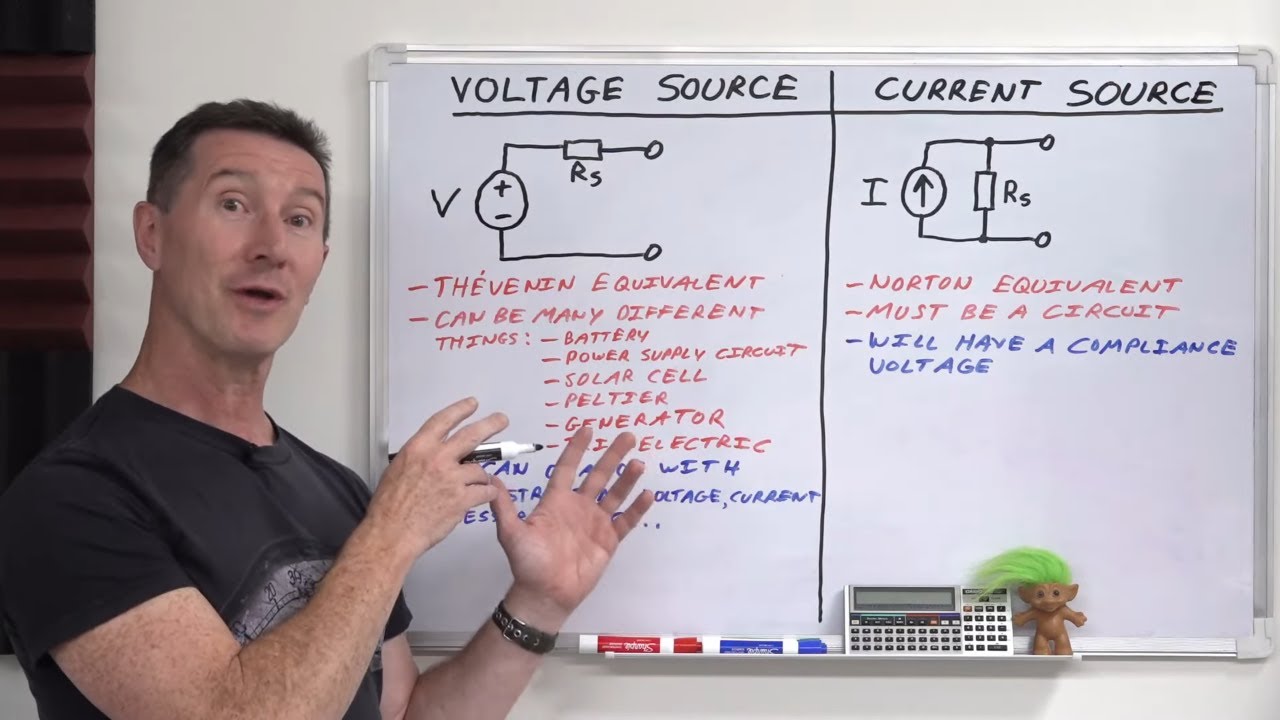 VOLTAGE SOURCE
V
+
−
Rs
- THÉVENIN EQUIVALENT
- CAN BE MANY DIFFERENT
THINGS: - BATTERY
- POWER SUPPLY CIRCUIT
- SOLAR CELL
- PELTIER
- GENERATOR
ELECTRIC
CAN WITH
VOLTAGE, CURRENT
CURRENT SOURCE
I
Rs
- NORTON EQUIVALENT
- MUST BE A CIRCUIT
- WILL HAVE A COMPLIANCE
VOLTAGE
Sharpie